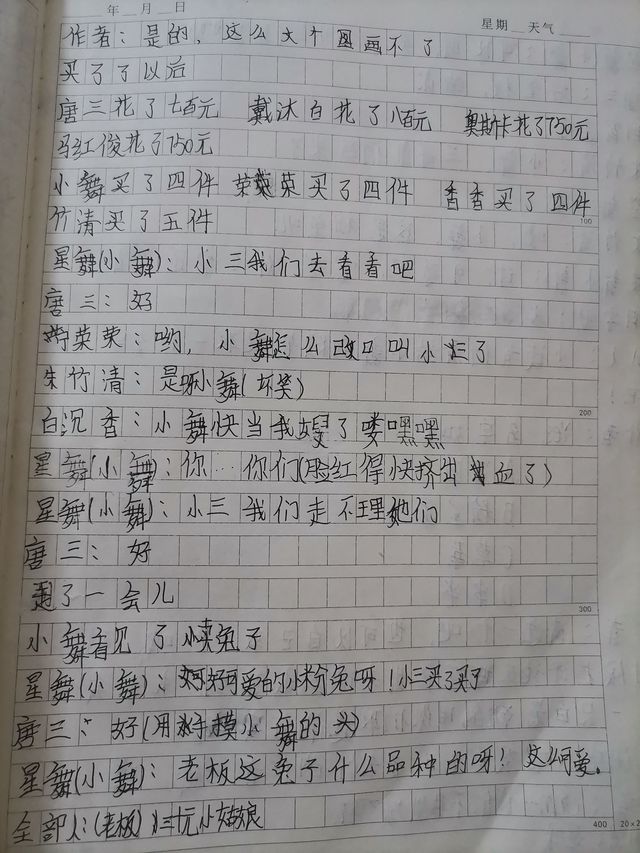 年 月 日 星期 天气
作者：是的，这么大个图画不了
买了了以后
唐三花了七百元 戴沐白花了八百元 奥斯卡花了750元
马红俊花了750元
小舞买了四件 荣荣买了四件 香香买了四件
竹清买了五件
100
星舞(小舞)：小三我们去看看吧
唐三：好
荣荣：哟，小舞怎么改口叫小三了
朱竹清：是呀小舞(坏笑)
200
白沉香：小舞快当我嫂了喽嘿嘿
星舞(小舞)：你…你们(脸红得快挤出血了)
星舞(小舞)：小三我们走不理她们
唐三：好
逛了一会儿
300
小舞看见了卖兔子
星舞(小舞)：好可爱的小粉兔呀！小三买了买了
唐三：好(用手摸小舞的头)
星舞(小舞)：老板这兔子什么品种的呀？这么可爱。
全部人：(老板)三十元小姑娘
400 20×2